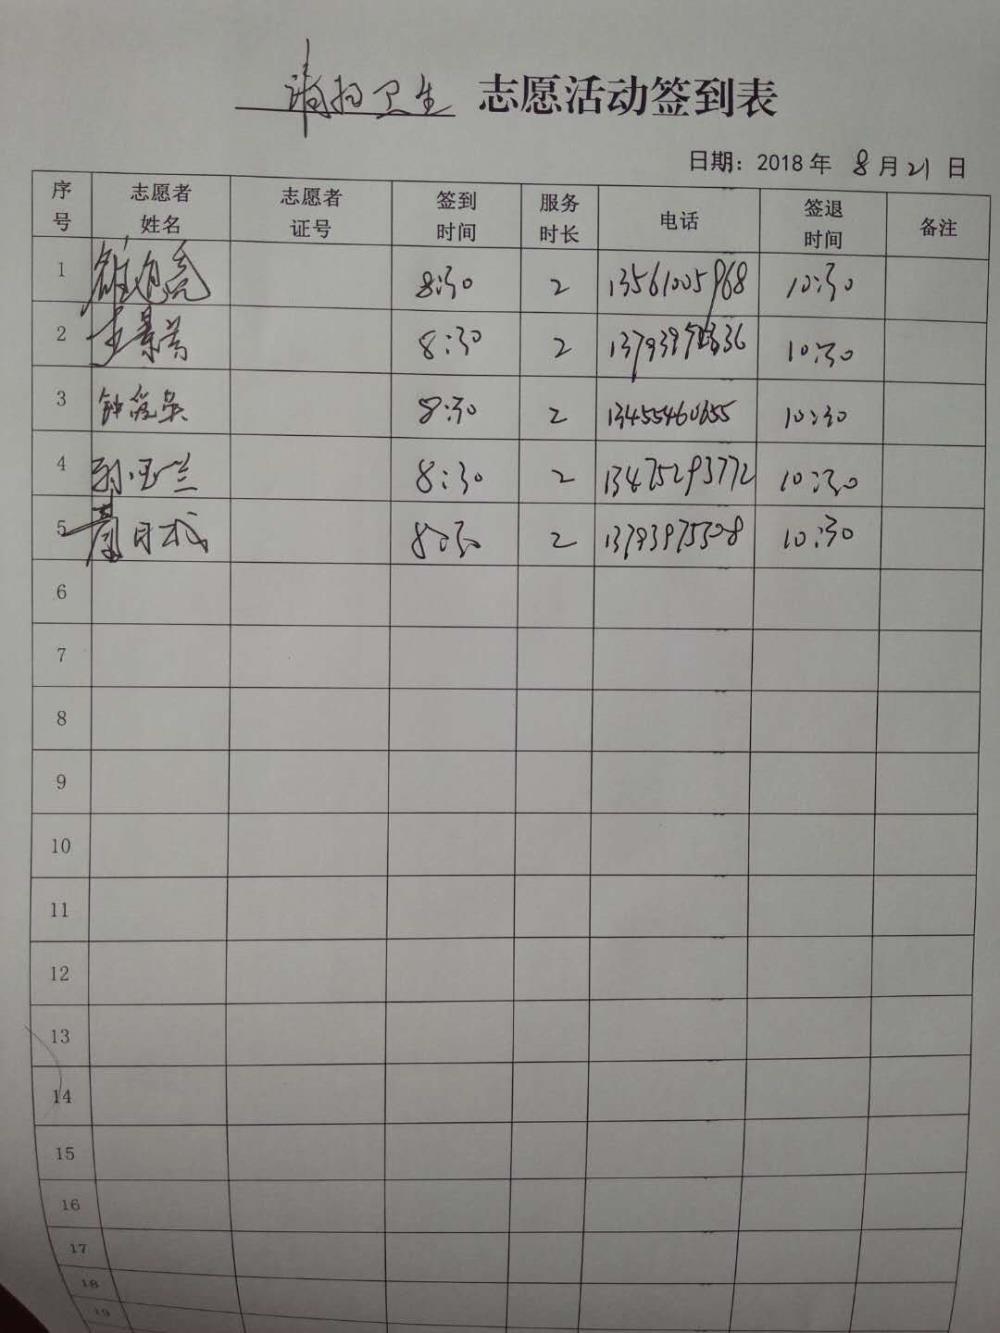 清扫卫生 志愿活动签到表
日期：2018年 8月21日
序号 志愿者姓名 志愿者证号 签到时间 服务时长 电话 签退时间 备注
1 8:30 2 13561005968 10:30
2 王景芳 8:30 2 10:30
3 钟爱英 8:30 2 13455460655 10:30
4 孙玉兰 8:30 2 13475293772 10:30
5 8:30 2 13793975308 10:30
6
7
8
9
10
11
12
13
14
15
16
17
18
19